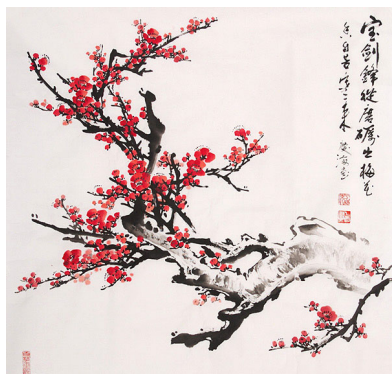 宝剑锋從磨礪出梅花
香自苦寒来